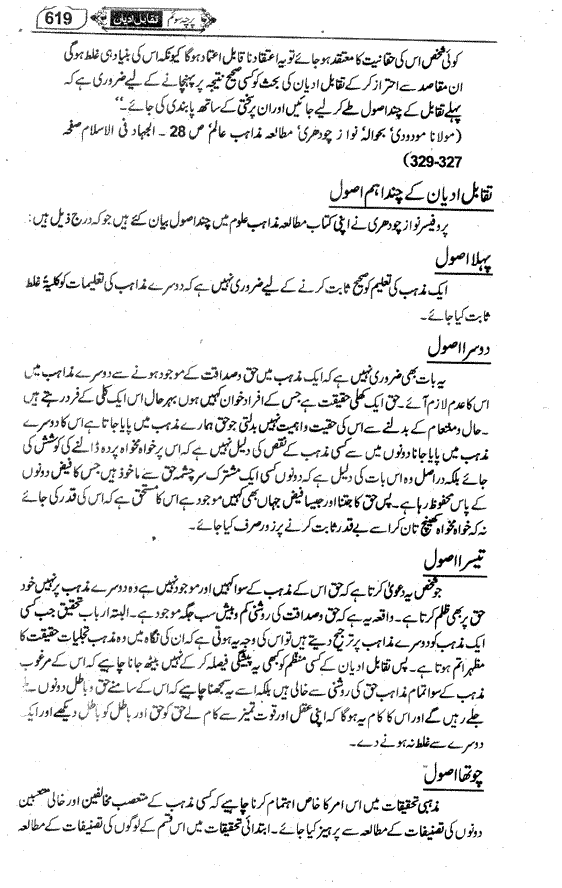 619 تقابل ادیان پرچہ سوئم
کوئی شخص اس کی حقانیت کا معتقد ہو جائے تو یہ اعتقاد ناقابل اعتماد ہو گا کیونکہ اس کی بنیاد ہی غلط ہوگی
ان مقاصد سے احتراز کر کے تقابل ادیان کی بحث کو کسی صحیح نتیجہ پر پہنچانے کے لیے ضروری ہے کہ
پہلے تقابل کے چند اصول طے کر لیے جائیں اور ان پر سختی کے ساتھ پابندی کی جائے۔‘‘
(مولانا مودودی بحوالہ نواز چودھری مطالعہ مذاہب عالم ص 28 ۔ الجہاد فی الاسلام صفحہ
327-329)
تقابل ادیان کے چند اہم اصول
پروفیسر نواز چودھری نے اپنی کتاب مطالعہ مذاہب علوم میں چند اصول بیان کئے ہیں جو کہ درج ذیل ہیں:
پہلا اصول
ایک مذہب کی تعلیم کو صحیح ثابت کرنے کے لیے ضروری نہیں ہے کہ دوسرے مذاہب کی تعلیمات کو کلیۃً غلط
ثابت کیا جائے۔
دوسرا اصول
یہ بات بھی ضروری نہیں ہے کہ ایک مذہب میں حق و صداقت کے موجود ہونے سے دوسرے مذاہب میں
اس کا عدم لازم آئے۔ حق ایک کھلی حقیقت ہے جس کے افراد خواں کہیں ہوں بہرحال اس ایک کلی کے فرد رہتے ہیں
۔ حال و مقام کے بدلنے سے اس کی حقیت و اہمیت نہیں بدلتی جو حق ہمارے مذہب میں پایا جاتا ہے اس کا دوسرے
مذہب میں پایا جانا دونوں میں سے کسی مذہب کے نقص کی دلیل نہیں ہے کہ اس پر خواہ مخواہ پردہ ڈالنے کی کوشش کی
جائے بلکہ دراصل وہ اس بات کی دلیل ہے کہ دونوں کسی ایک مشترک سرچشمہ حق سے ماخوذ ہیں جس کا فیض دونوں
کے پاس محفوظ رہا ہے۔ پس حق کا جتنا اور جیسا فیض جہاں بھی کہیں موجود ہے اس کا مستحق ہے کہ اس کی قدر کی جائے
نہ کہ خواہ مخواہ کھینچ تان کر اسے بے قدر ثابت کرنے پر زور صرف کیا جائے۔
تیسرا اصول
جو شخص یہ دعویٰ کرتا ہے کہ حق اس کے مذہب کے سوا کہیں اور موجود نہیں ہے وہ دوسرے مذہب پر نہیں خود
حق پر بھی ظلم کرتا ہے۔ واقعہ یہ ہے کہ حق و صداقت کی روشنی کم و بیش سب جگہ موجود ہے۔ البتہ ارباب تحقیق جب کسی
ایک مذہب کو دوسرے مذاہب پر ترجیح دیتے ہیں تو اس کی وجہ یہ ہوتی ہے کہ ان کی نگاہ میں وہ مذہب تجلیات حقیقت کا
مظہر اتم ہوتا ہے۔ پس تقابل ادیان کے کسی منظم کو بھی یہ پیشگی فیصلہ کر کے نہیں بیٹھ جانا چاہیے کہ اس کے مرغوب
مذہب کے سوا تمام مذاہب حق کی روشنی سے خالی ہیں بلکہ اسے یہ سمجھنا چاہیے کہ اس کے سامنے حق و باطل دونوں ملے
جلے رہیں گے اور اس کا کام یہ ہو گا کہ اپنی عقل اور قوت تمیز سے کام لے حق کو حق اور باطل کو باطل دیکھے اور ایک
دوسرے سے غلط نہ ہونے دے۔
چوتھا اصول
مذہبی تحقیقات میں اس امر کا خاص اہتمام کرنا چاہیے کہ کسی مذہب کے متعصب مخالفین اور خالی متعصبین
دونوں کی تصنیفات کے مطالعہ سے پرہیز کیا جائے۔ ابتدائی تحقیقات میں اس قسم کے لوگوں کی تصنیفات کے مطالعہ